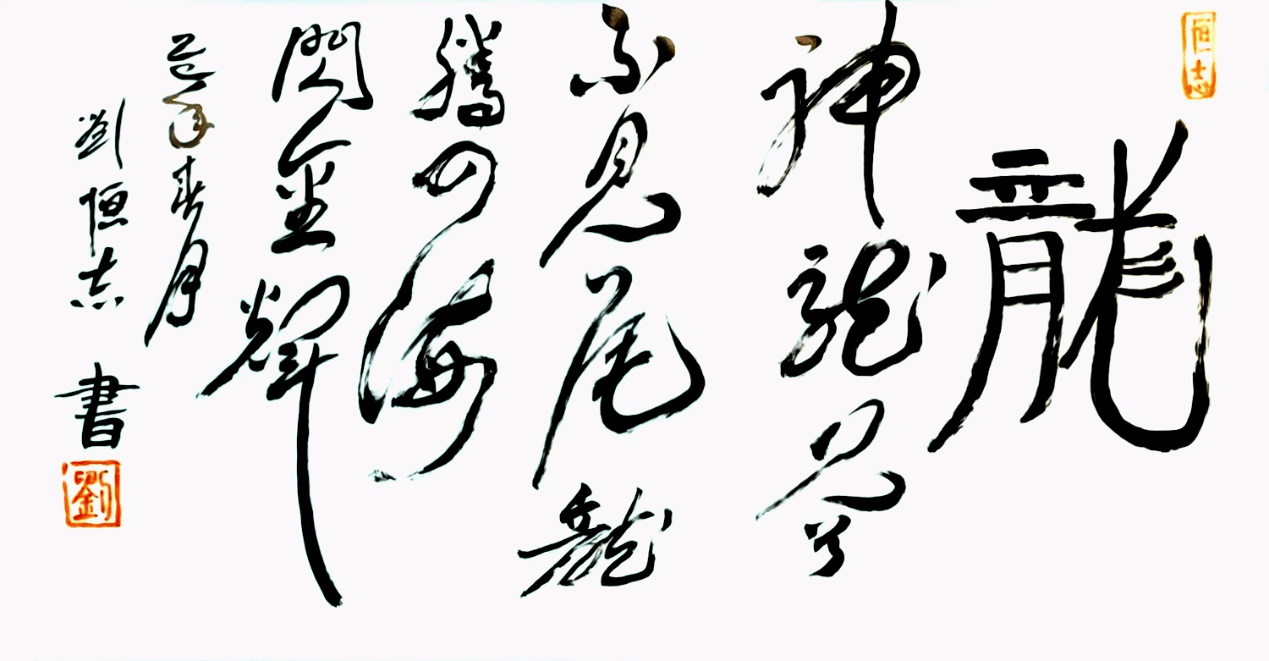 恒志
龍
神龍見首
不見尾龍
騰四海
閃金輝
年春月
劉恒志書
劉